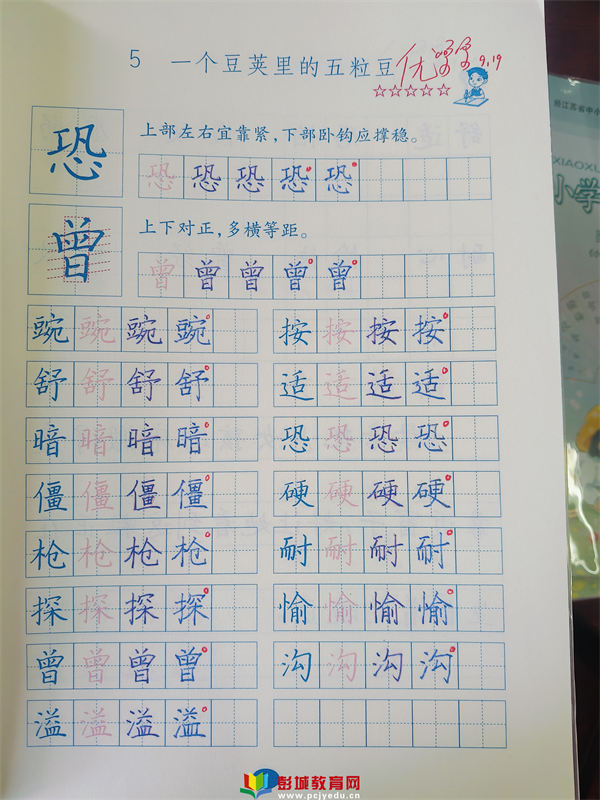 5 一个豆荚里的五粒豆 优 9.19
☆☆☆☆☆
恐 上部左右宜靠紧，下部卧钩应撑稳。
恐 恐 恐 恐 恐
曾 上下对正，多横等距。
曾 曾 曾 曾 曾
豌 豌 豌 豌 按 按 按 按
舒 舒 舒 舒 适 适 适 适
暗 暗 暗 暗 恐 恐 恐 恐
僵 僵 僵 僵 硬 硬 硬 硬
枪 枪 枪 枪 耐 耐 耐 耐
探 探 探 探 愉 愉 愉 愉
曾 曾 曾 曾 沟 沟 沟 沟
溢 溢 溢 溢
经江苏省中小
XIAOXU
小学
彭城教育网
www.pcjyedu.cn